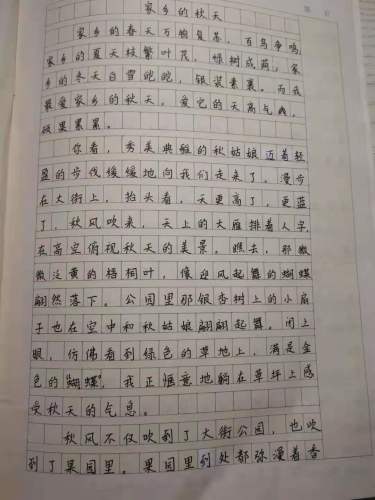 家乡的秋天
家乡的春天万物复苏，百鸟争鸣，
家乡的夏天枝繁叶茂，绿树成荫，家
乡的冬天白雪皑皑，银装素裹。而我
最爱家乡的秋天，爱它的天高气爽，
硕果累累。
你看，秀美典雅的秋姑娘迈着轻
盈的步伐缓缓地向我们走来了。漫步
在大街上，抬头看，天更高了，更蓝
了，秋风吹来，天上的大雁排着人字，
在高空俯视秋天的美景。瞧去，那微
微泛黄的梧桐叶，像迎风起舞的蝴蝶
翩然落下。公园里那银杏树上的小扇
子也在空中和秋姑娘翩翩起舞。闭上
眼，仿佛看到绿色的草地上，满是金
色的“蝴蝶”，我正惬意地躺在草坪上感
受秋天的气息。
秋风不仅吹到了大街公园，也吹
到了果园里。果园里到处都弥漫着香